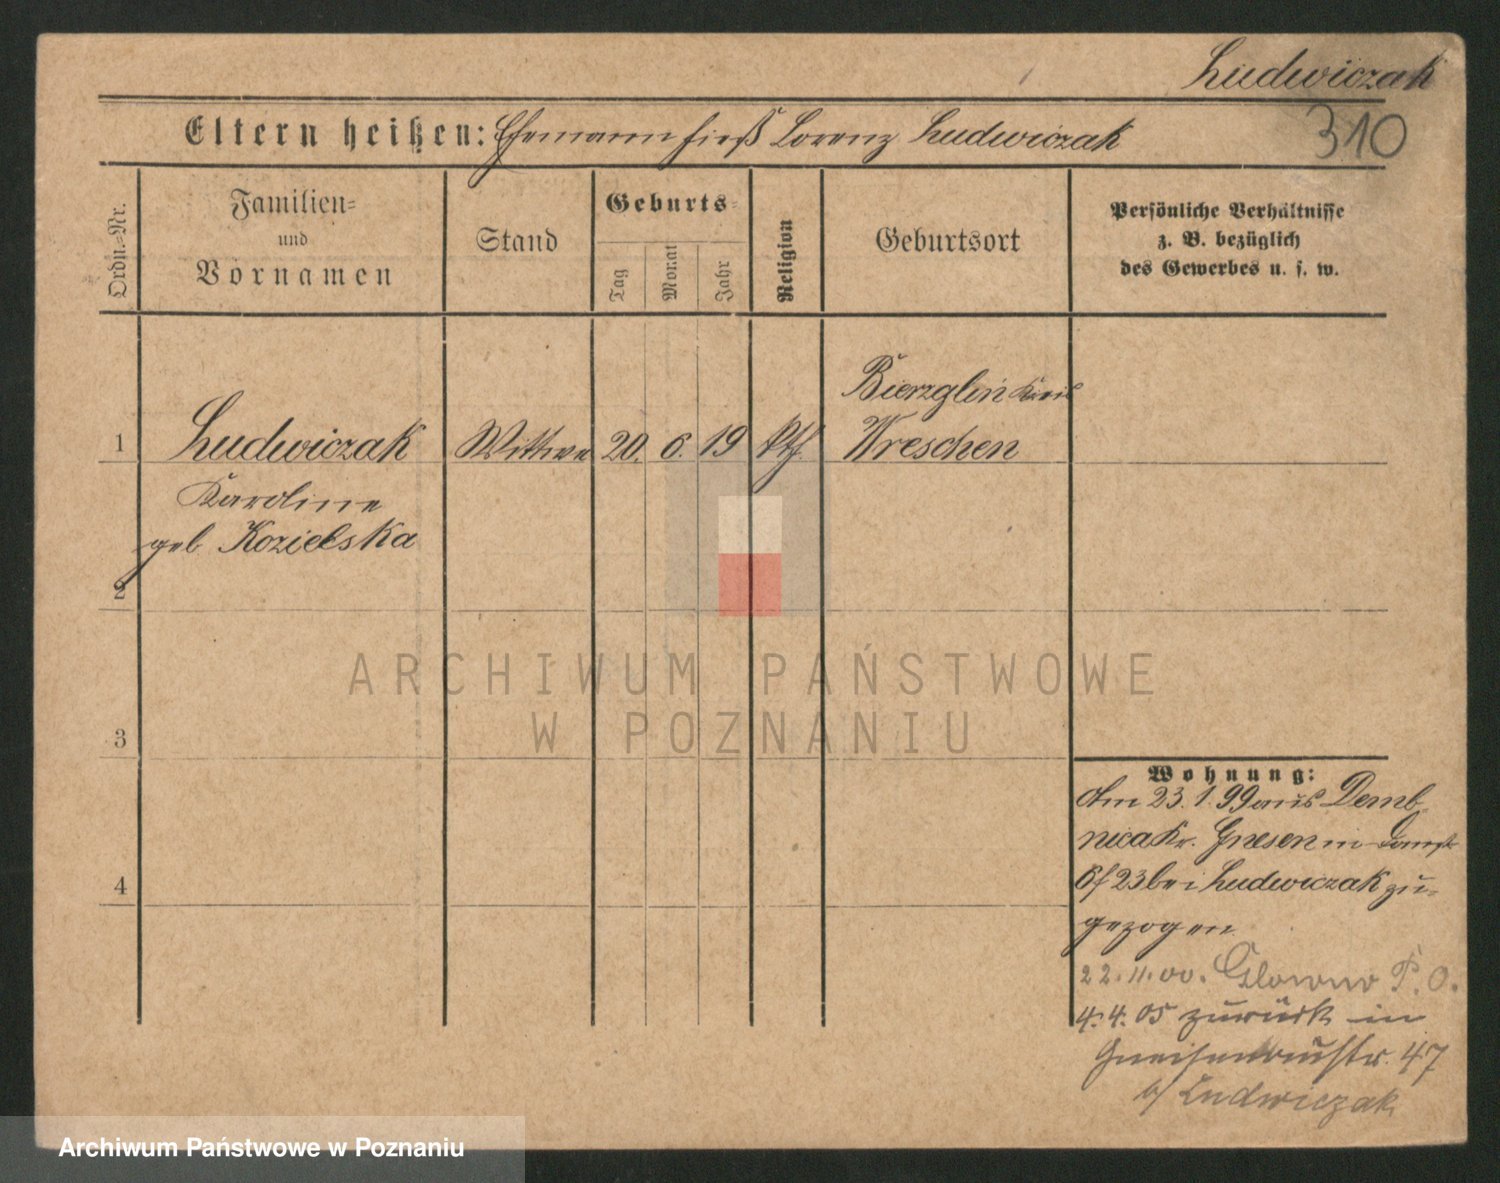 Ludwiczak
310
Eltern heißen: Ehemann hieß Lorenz Ludwiczak
Ordn.=Nr.
Familien=
und
Vornamen
Stand
Geburts=
Tag
Monat
Jahr
Religion
Geburtsort
Persönliche Verhältnisse
z. B. bezüglich
des Gewerbes u. s. w.
Bierzglin Kreis
1 Ludwiczak Wittwe 20. 6. 19 kth. Wreschen
Karoline
geb Kozielska
2
3
4
Wohnung:
Am 23.1.99 aus Demb-
nica Kr. Gnesen in
6/23 bei Ludwiczak zu-
gezogen.
22.11.00. Glowno P.O.
4.4.05 zurück in
Gneisenaustr. 47
b/ Ludwiczak
ARCHIWUM PAŃSTWOWE
W POZNANIU
Archiwum Państwowe w Poznaniu